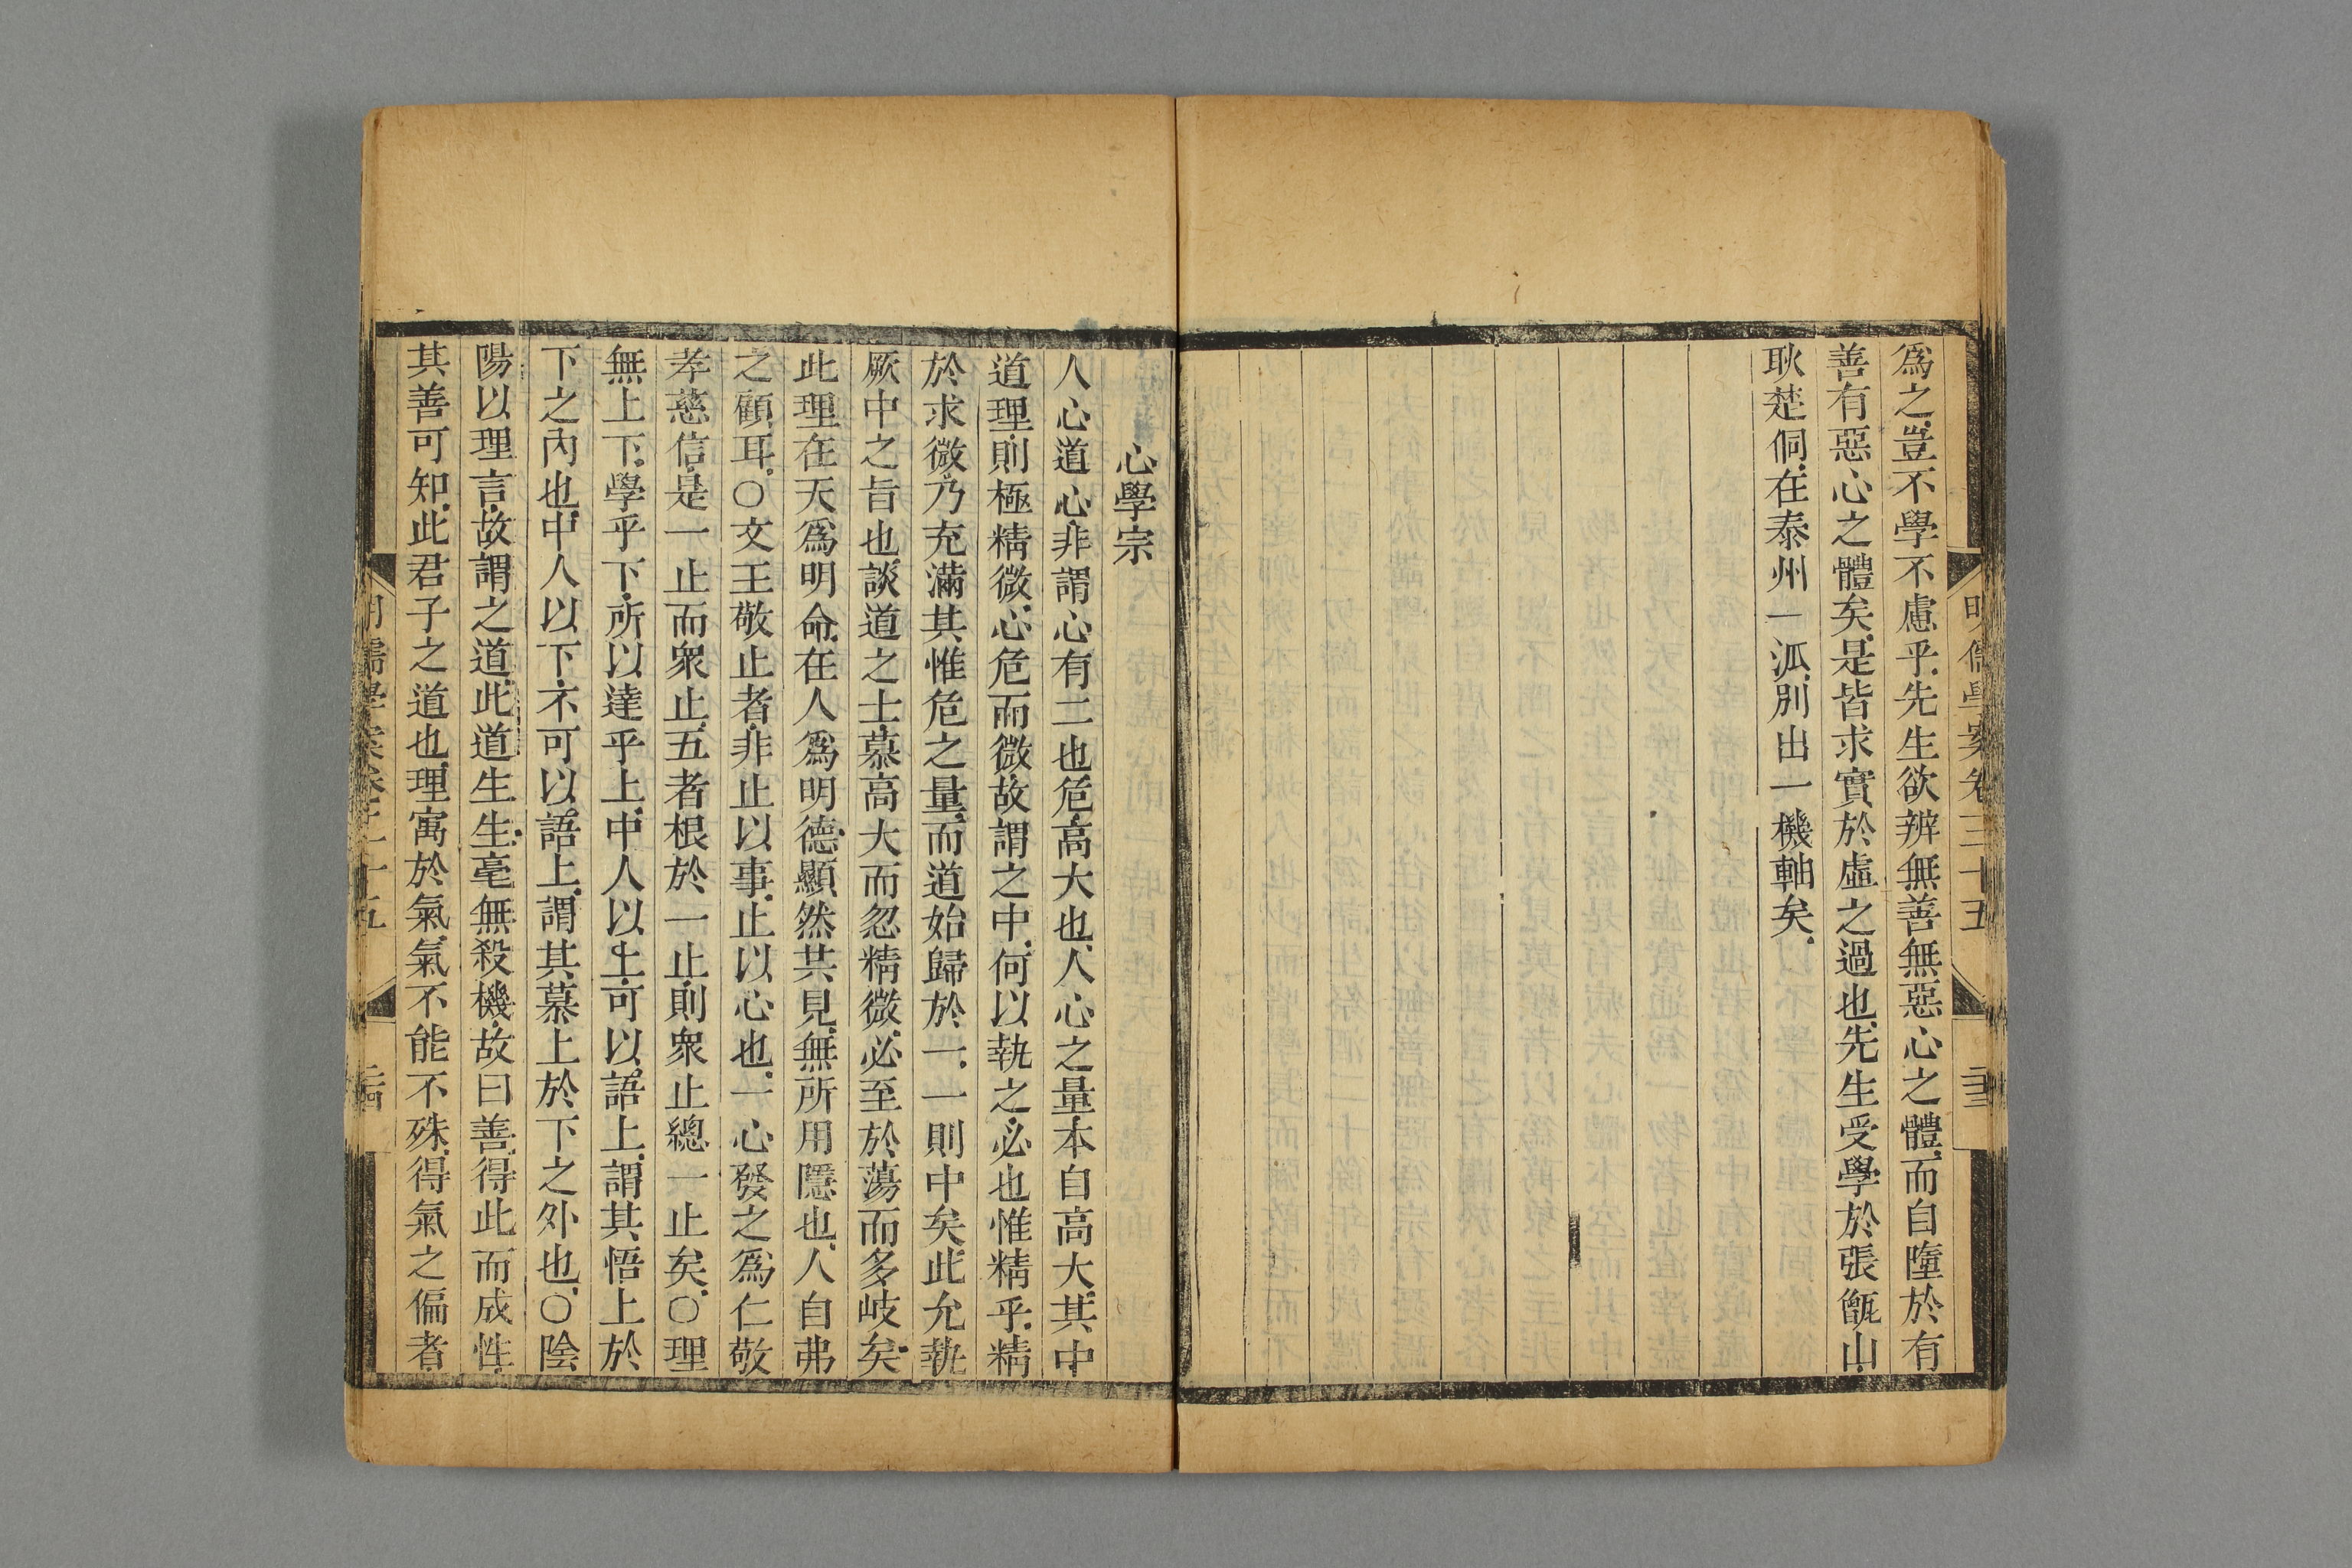 爲之豈不學不慮乎先生欲辨無善無惡心之體而自墮於有
善有惡心之體矣是皆求實於虛之過也先生受學於張甑山
耿楚侗在泰州一派別出一機軸矣
心學宗
人心道心非謂心有二也危高大也人心之量本自高大其中
道理則極精微心危而微故謂之中何以執之必也惟精乎精
於求微乃充滿其惟危之量而道始歸於一一則中矣此允執
厥中之旨也談道之士慕高大而忽精微必至於蕩而多岐矣
此理在天爲明命在人爲明德顯然共見無所用隱也人自弗
之顧耳○文王敬止者非止以事止以心也一心發之爲仁敬
孝慈信是一止而衆止五者根於一止則衆止總一止矣○理
無上下學乎下所以達乎上中人以上可以語上謂其悟上於
下之內也中人以下不可以語上謂其慕上於下之外也○陰
陽以理言故謂之道此道生生毫無殺機故曰善得此而成性
其善可知此君子之道也理寓於氣氣不能不殊得氣之偏者
明儒學案卷三十五